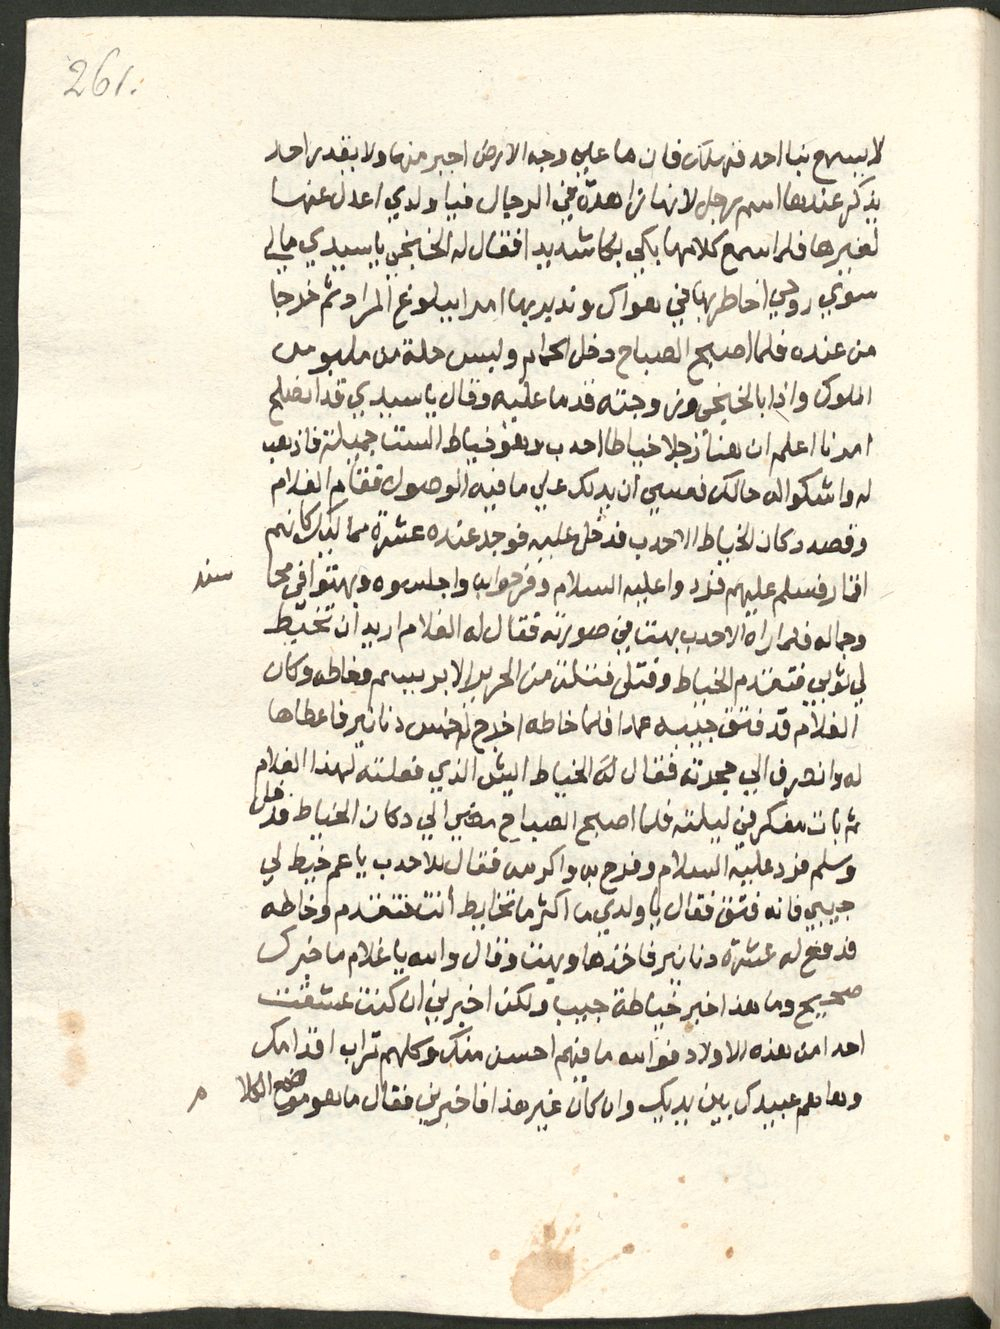 261.
لا يسمع بنا احد فنهلك فان ما علي وجه الارض اجبر منها ولا يقدر احد
يذكر عندها اسم رجل لانها زاهدة في الرجال فيا ولدي اعدل عنها
لغيرها فلما سمع كلامها بكي بكا شديدا فقال له الخليجي يا سيدي مالي
سوي روحي اخاطر بها في هواك وندبر بها امرا ببلوغ المراد ثم خرجا
من عنده فلما اصبح الصباح دخل الحمام ولبس حلة من ملبوس
الملوك واذا بالخليجي وزوجته قدما عليه وقال يا سيدي قد انصلح
امرنا اعلم ان هنا رجلا خياطا احدب وهو خياط الست جميلة فاذهب
له واشكو اله حالك فعسي ان يدلك علي ما فيه الوصول فقام الغلام
وقصد دكان الخياط الاحدب فدخل عليه فوجد عنده عشرة مماليك كانهم
اقمار فسلم عليهم فردوا عليه السلام وفرحوا به واجلسوه وبهتوا في محا سنه
وجماله فلما راه الاحدب بهت في صورته فقال له الغلام اريد ان تخيط
لي ثوبي فتقدم الخياط وفتل فتلة من الحرير الابريسم وخاطه وكان
الغلام قد فتق جيبه عمدا فلما خاطه اخرج له خمس دنانير فاعطاها
له وانصرف الي حجرته فقال له الخياط ايش الذي فعلته لهذا الغلام
ثم بات مفكر في ليلته فلما اصبح الصباح مضي الي دكان الخياط فدخل
وسلم فرد عليه السلام وفرح به واكرمه فقال للاحدب يا عم خيط لي
جيبي فانه فتق فقال يا ولدي ما اكثر ما تخايط أنت فتقدم وخاطه
فدفع له عشرة دنانير فاخذها وبهت وقال والله يا غلام ما خبرك
صحيح وما هذا خبر خياطة جيب ولكن اخبرني ان كنت عشقت
احدا من هذه الاولاد فوالله ما فيهم احسن منك وكلهم تراب اقدامك
وها هم عبيدك بين يديك وان كان غير هذا فاخبرني فقال ما هو موضع الكلا م